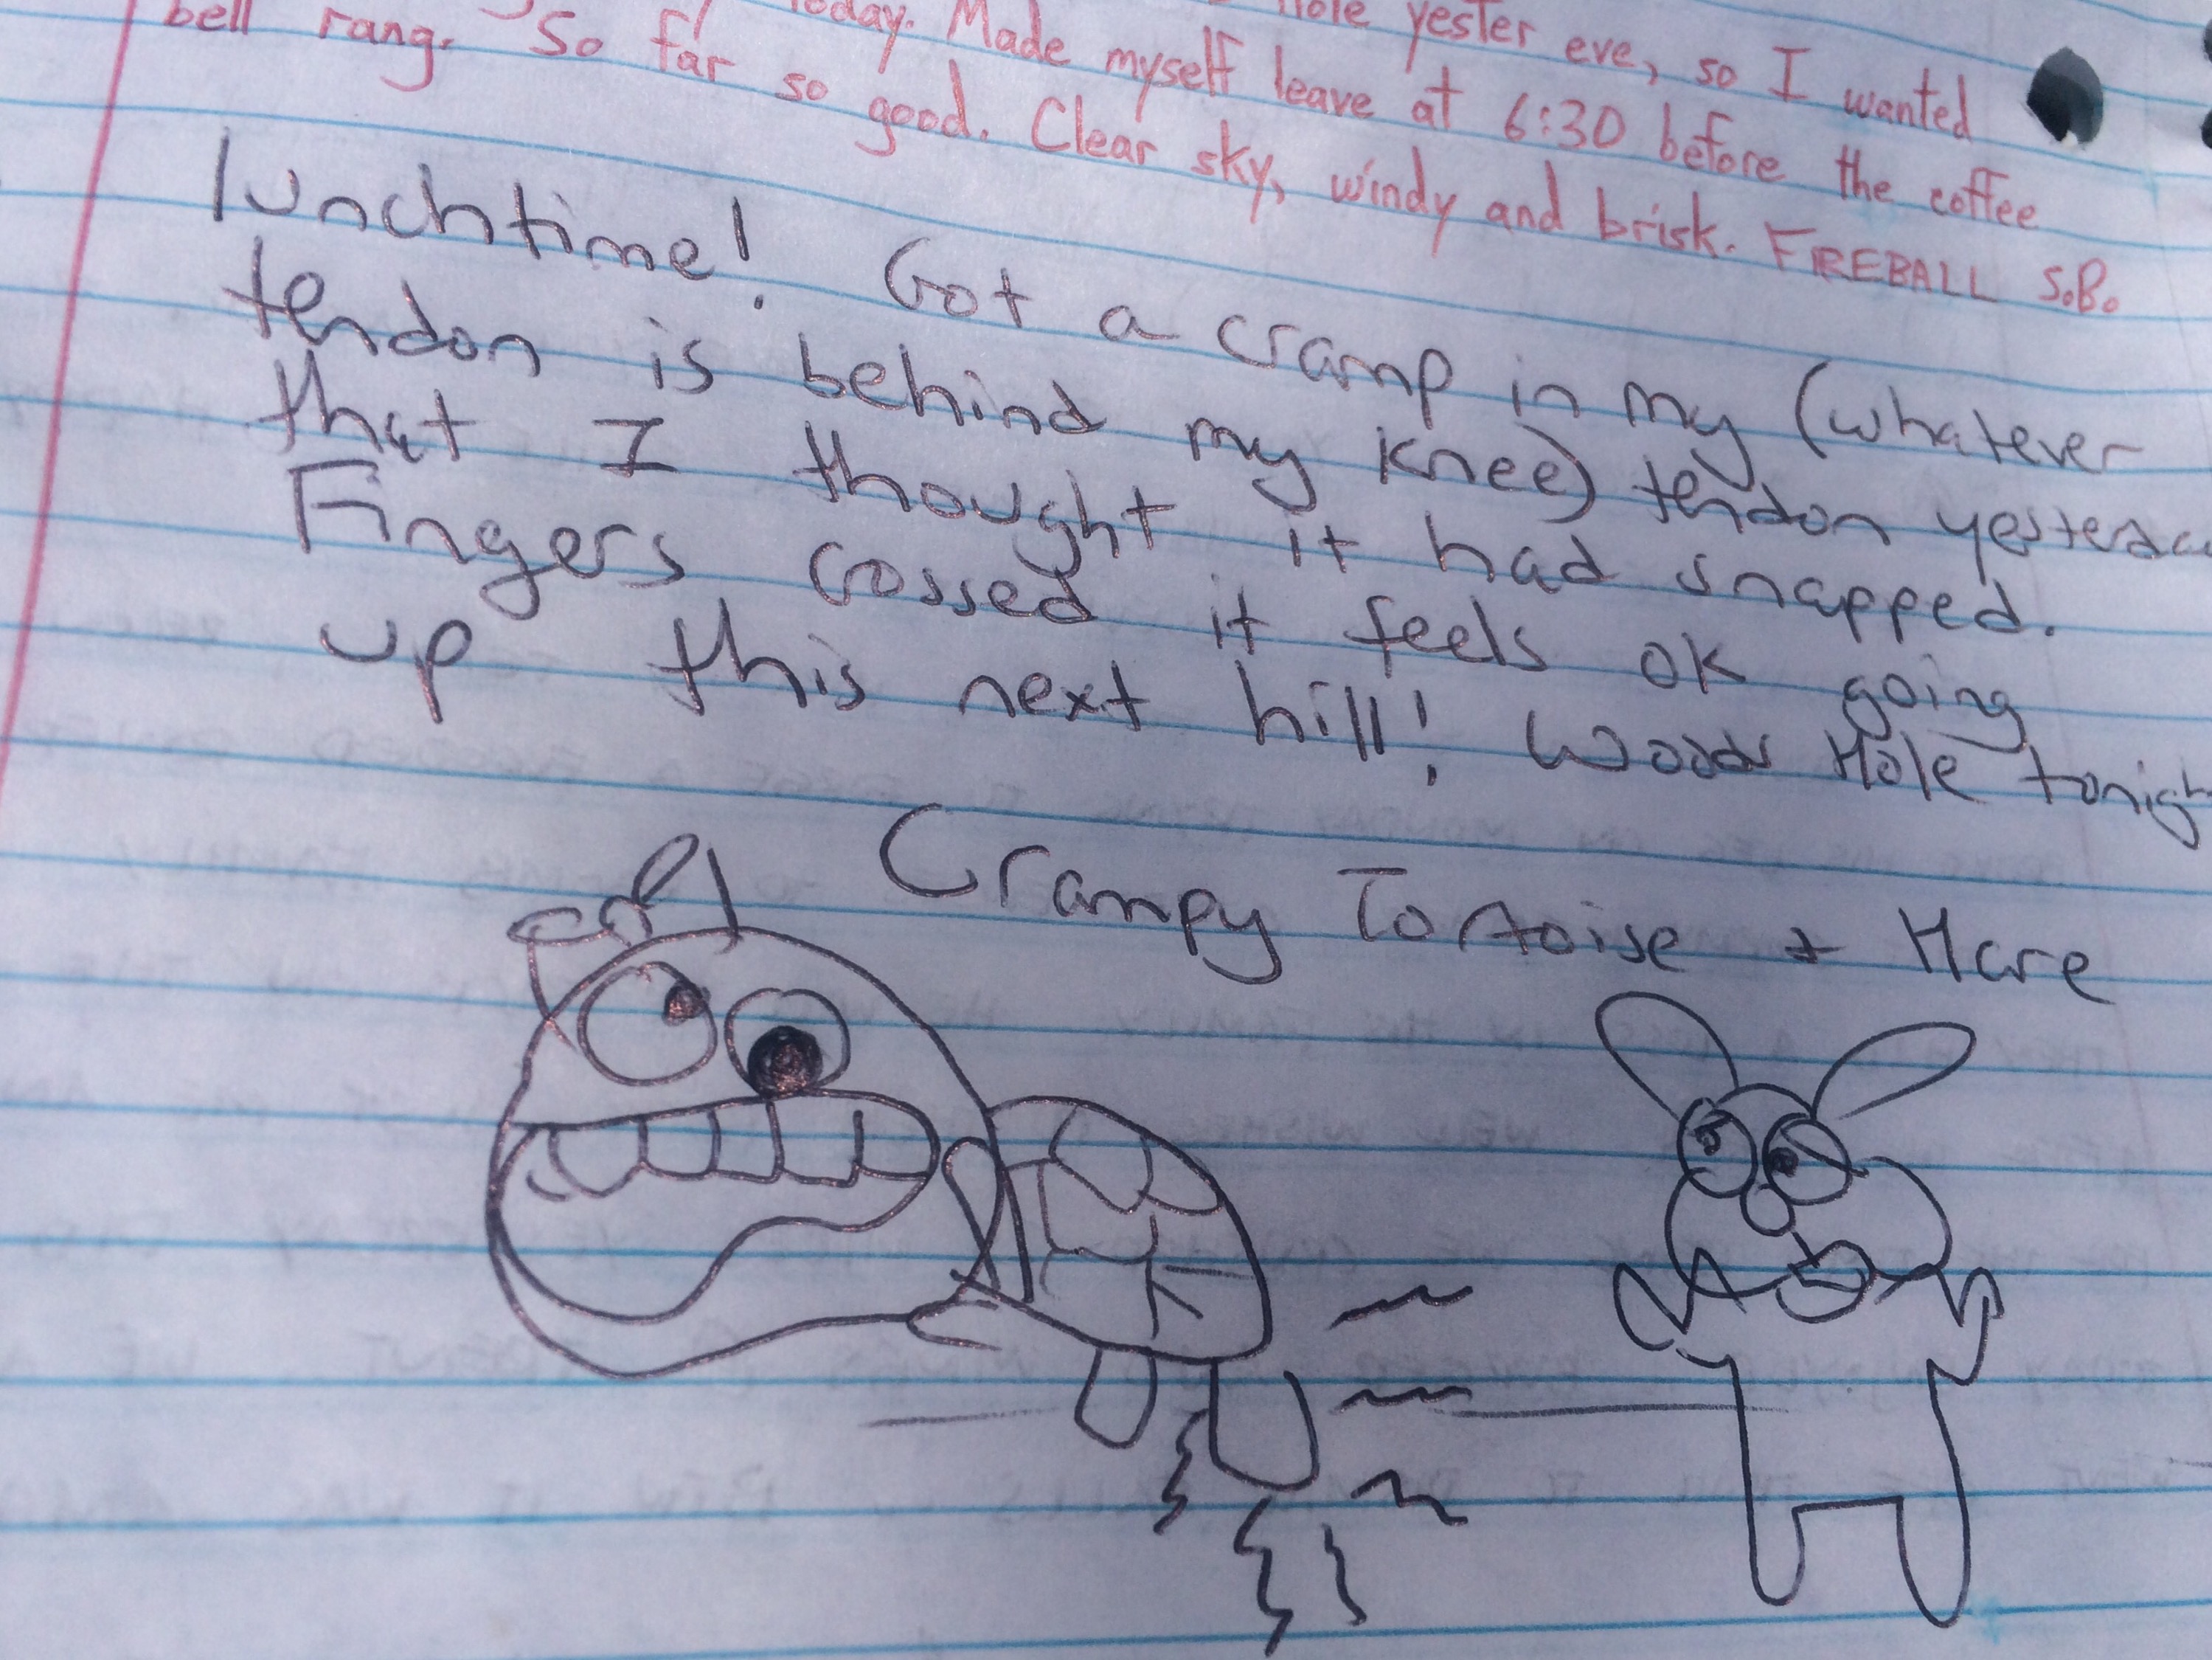 Hole yester eve, so I wanted
today. Made myself leave at 6:30 before the coffee
bell rang. So far so good. Clear sky, windy and brisk. FIREBALL S.B.
lunchtime! Got a cramp in my (whatever
tendon is behind my knee) tendon yesterda
that I thought it had snapped.
Fingers crossed it feels ok going
up this next hill! Woods Hole tonigh
Crampy Tortoise + Hare